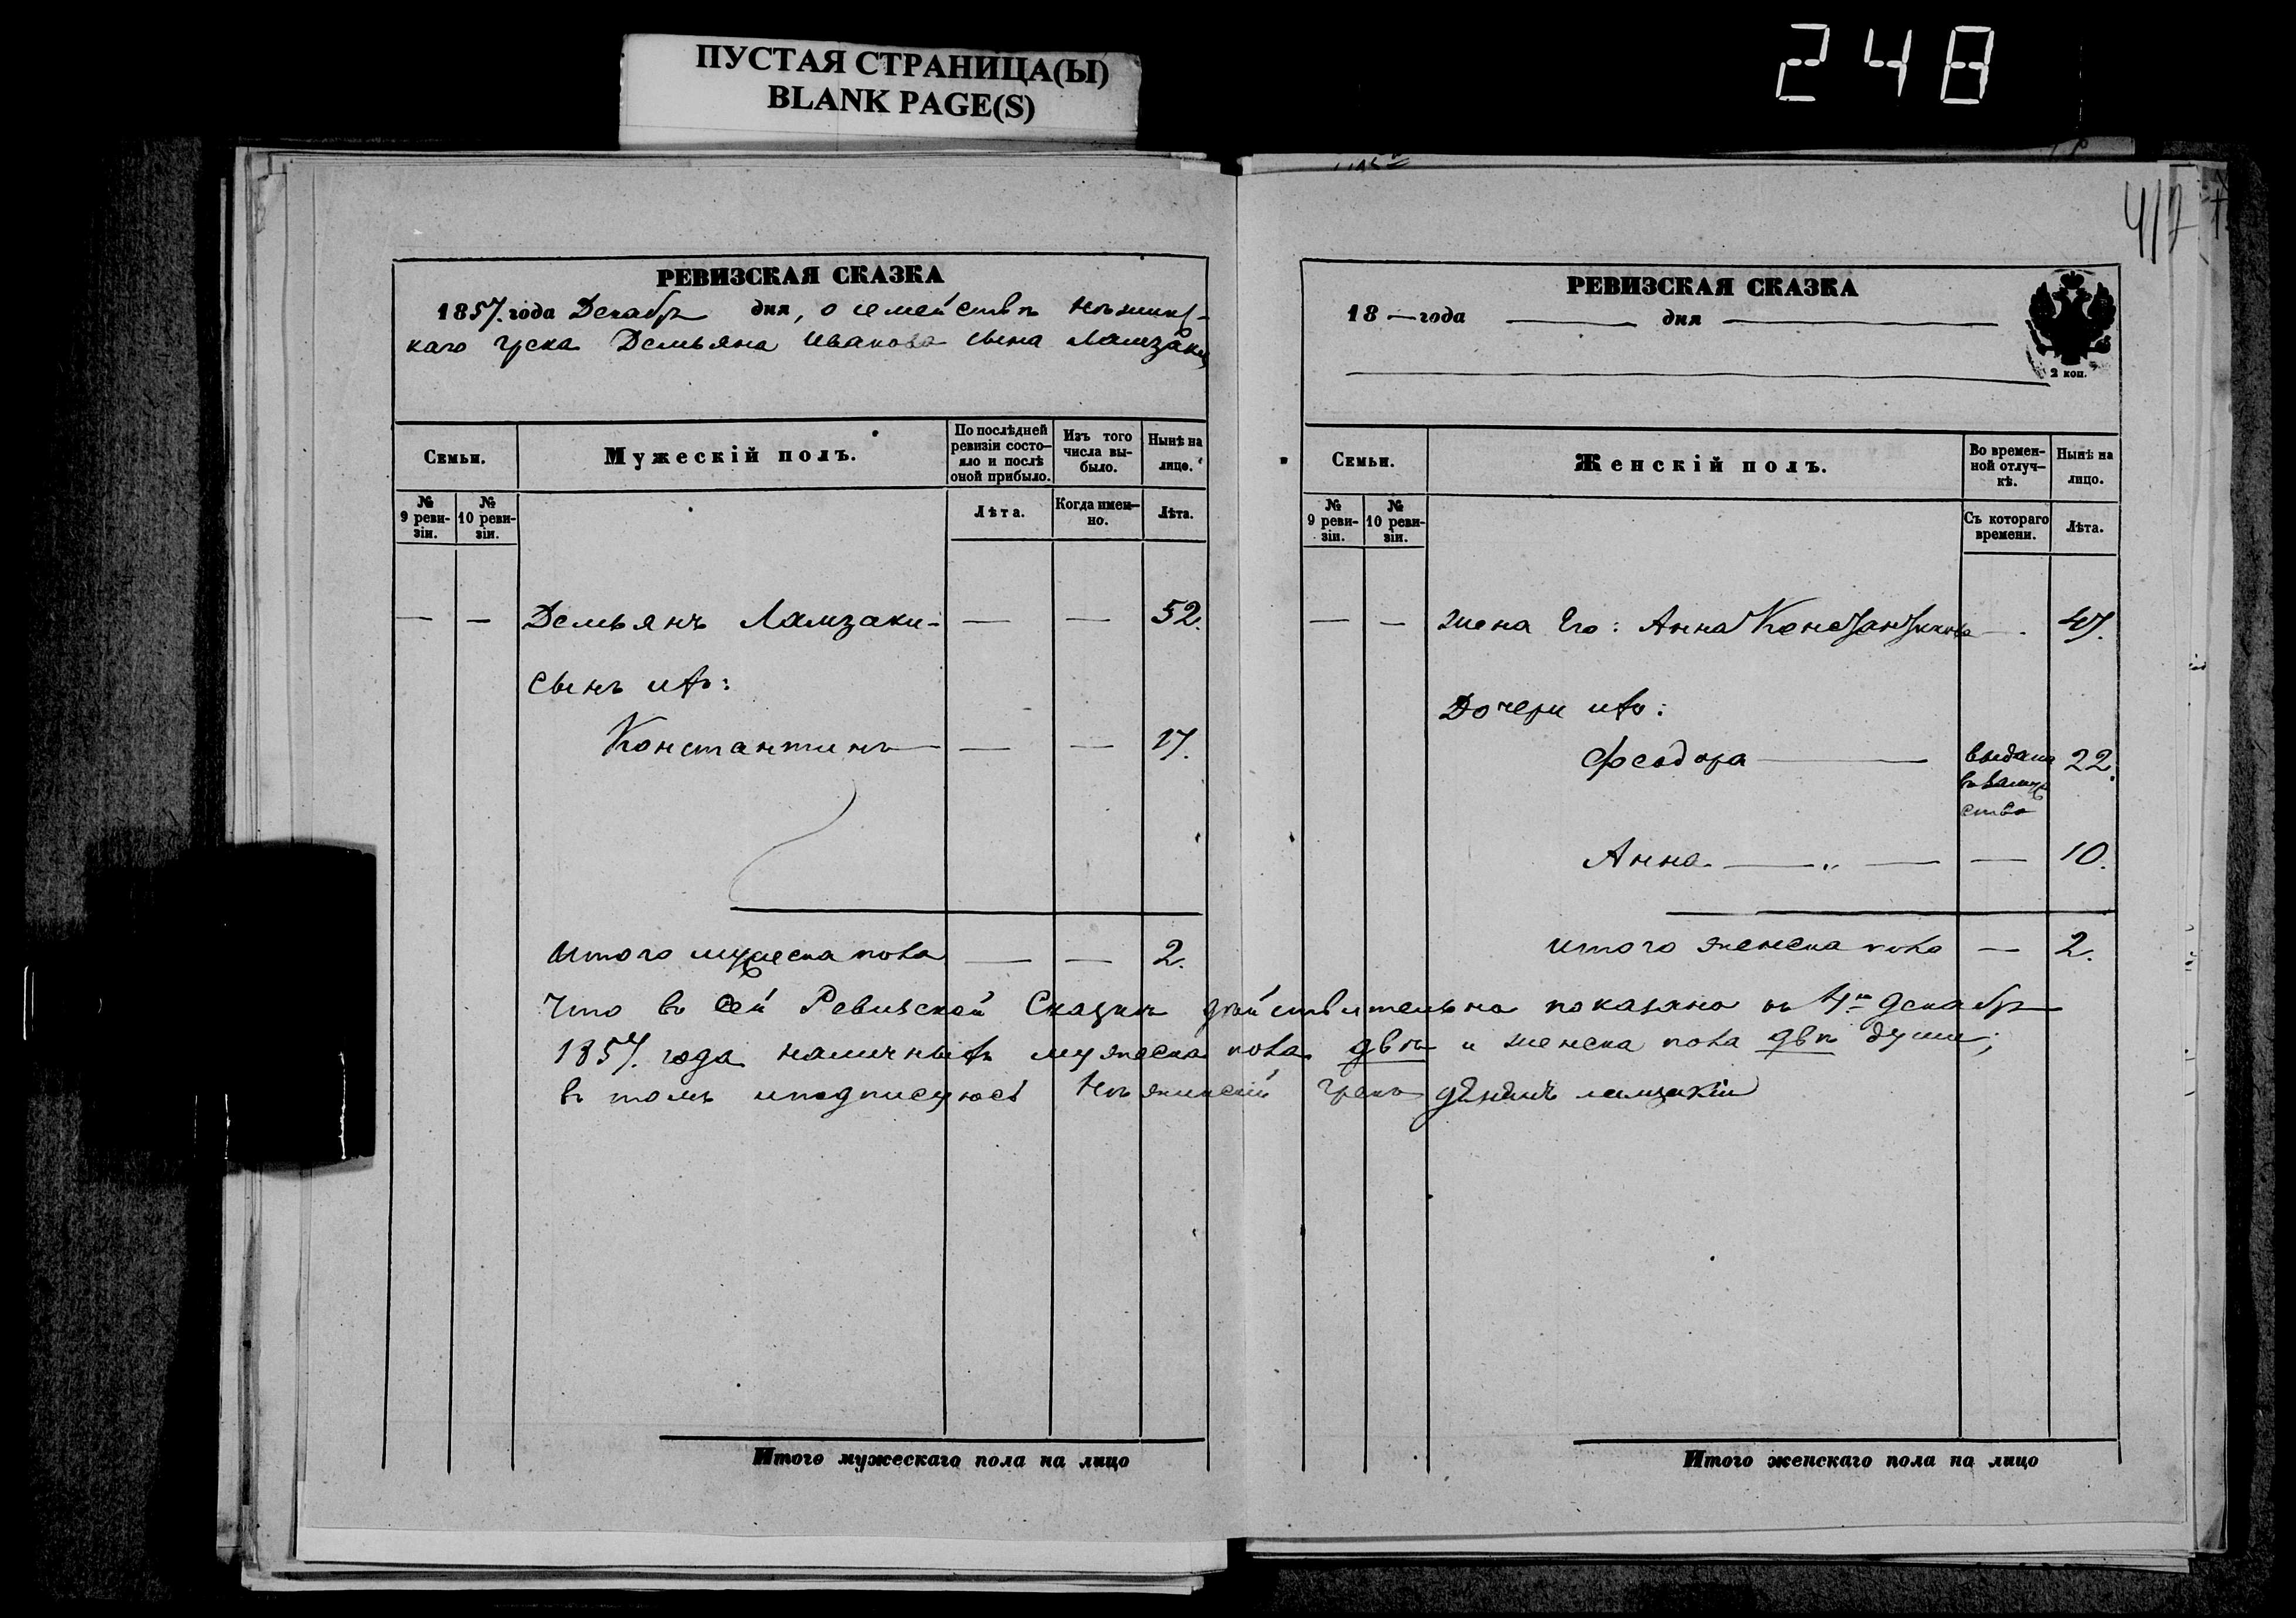 ПУСТАЯ СТРАНИЦА(Ы)
BLANK PAGE(S)
248
412
РЕВИЗСКАЯ СКАЗКА
1857. года Декабря дня, о семействѣ Нѣжинс-
каго Грека Демьяна Иванова сына Ламзаки
Семьи.
Мужескій полъ.
По послѣдней ревизіи состо-яло и послѣ оной прибыло.
Изъ того числа вы-было.
Нынѣ на лицо.
№ 9 реви-зіи.
№ 10 реви-зіи.
Лѣта.
Когда имен-но.
Лѣта.
— — Демьянъ Ламзаки — — 52.
Сынъ ихъ:
Константинъ — — 17.
Итого мужеска пола — — 2.
РЕВИЗСКАЯ СКАЗКА
18 — года — дня —
2 коп.
Семьи.
Женскій полъ.
Во времен-ной отлуч-кѣ.
Нынѣ на лицо.
№ 9 реви-зіи.
№ 10 реви-зіи.
Съ котораго времени.
Лѣта.
— — Жена Его: Анна Константинова — 47.
Дочери ихъ:
Феодора — выдана 22.
въ замуже
ство
Анна — „ — — 10.
Итого женска пола — 2.
Что въ сей Ревизской Сказкѣ дѣйствительно показано къ Декабря
1857. года наличныхъ мужеска пола двѣ и женска пола двѣ души;
въ томъ и подписуюсь Нѣжинскій Грекъ ламзакіи
Итого мужескаго пола на лицо
Итого женскаго пола на лицо